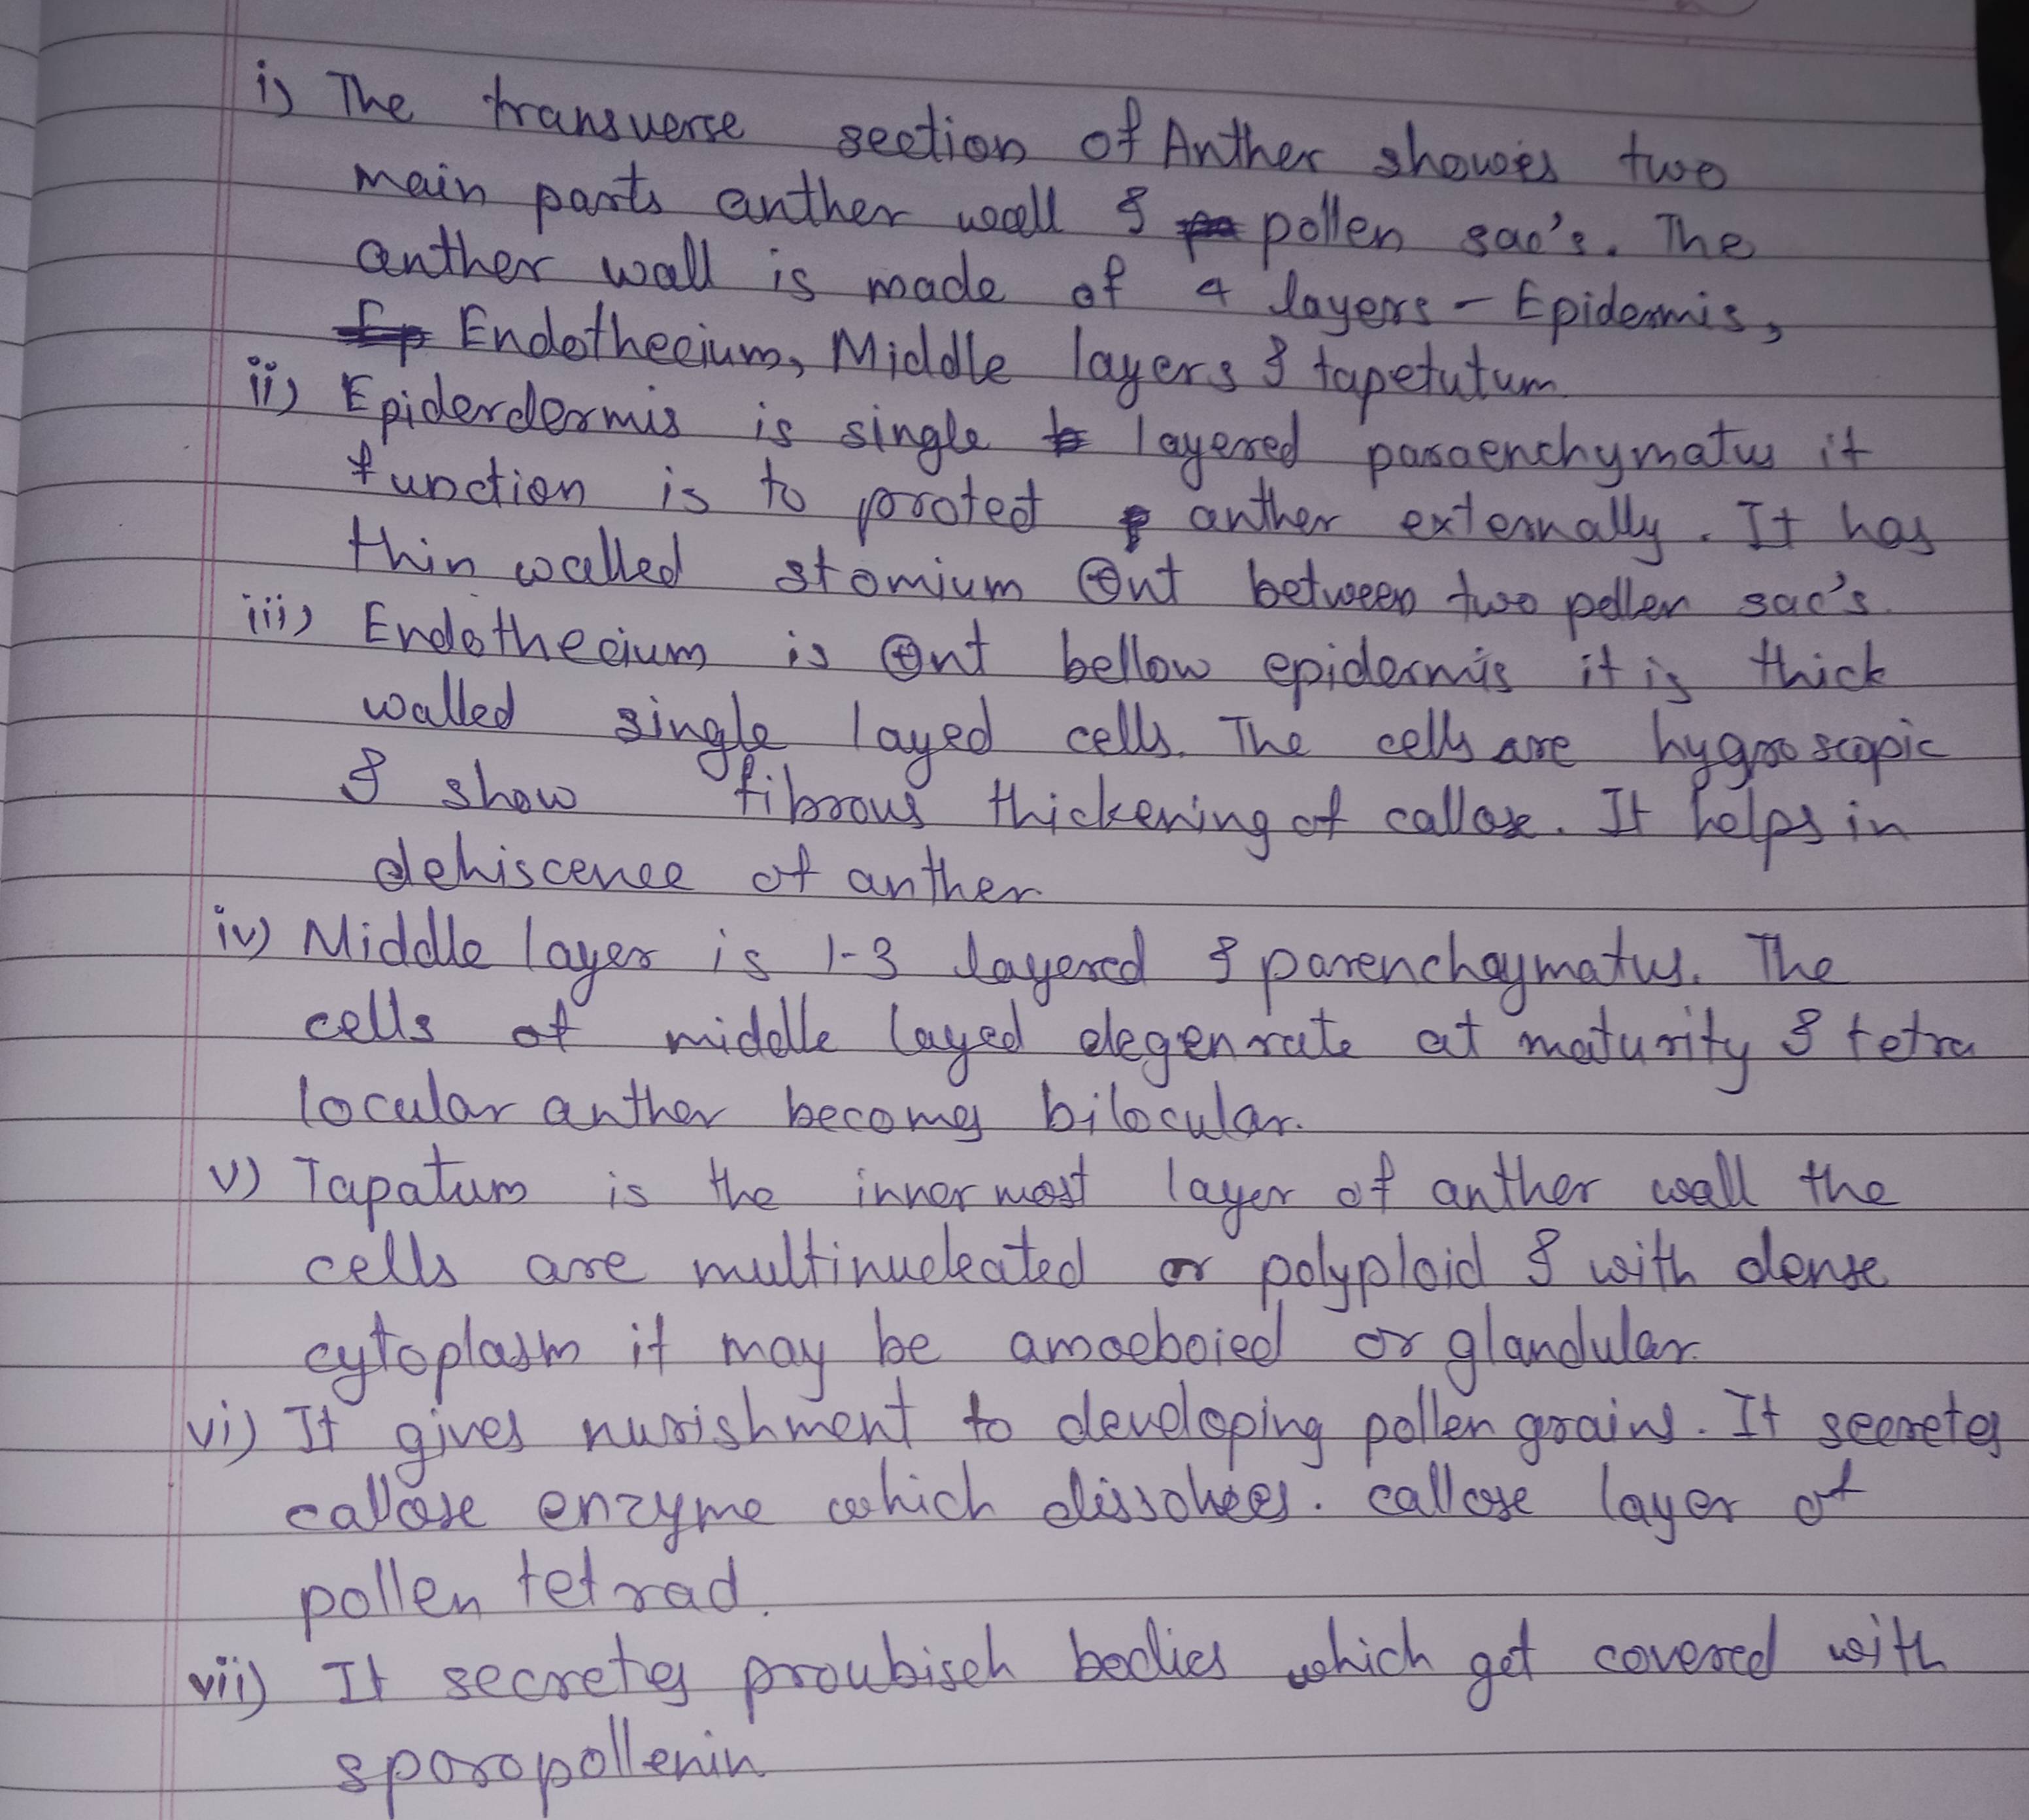 i) The transverse section of Anther showes two
main parts anther wall & pollen sac's. The
anther wall is made of 4 layers - Epidermis,
Endothecium, Middle layers & tapetutum
ii) Epiderdermis is single layered paraenchymatus it
function is to protect anther externally. It has
thin walled stomium ⊕nt between two pollen sac's.
iii) Endothecium is ⊕nt bellow epidermis it is thick
walled single layed cells. The cells are hygroscopic
& show fibrous thickening of callose. It helps in
dehiscence of anther
iv) Middle layer is 1-3 layered & parenchaymatus. The
cells of middle layed degenrate at maturity & tetra
locular anther becomes bilocular.
v) Tapatum is the inner most layer of anther wall the
cells are multinucleated or polyploid & with dense
cytoplasm it may be amoeboied or glandular.
vi) It gives nurishment to developing pollen grains. It secretes
callose enzyme which dissolves. callose layer of
pollen tetrad.
vii) It secretes proubisch bodies which get covered with
sporopollenin